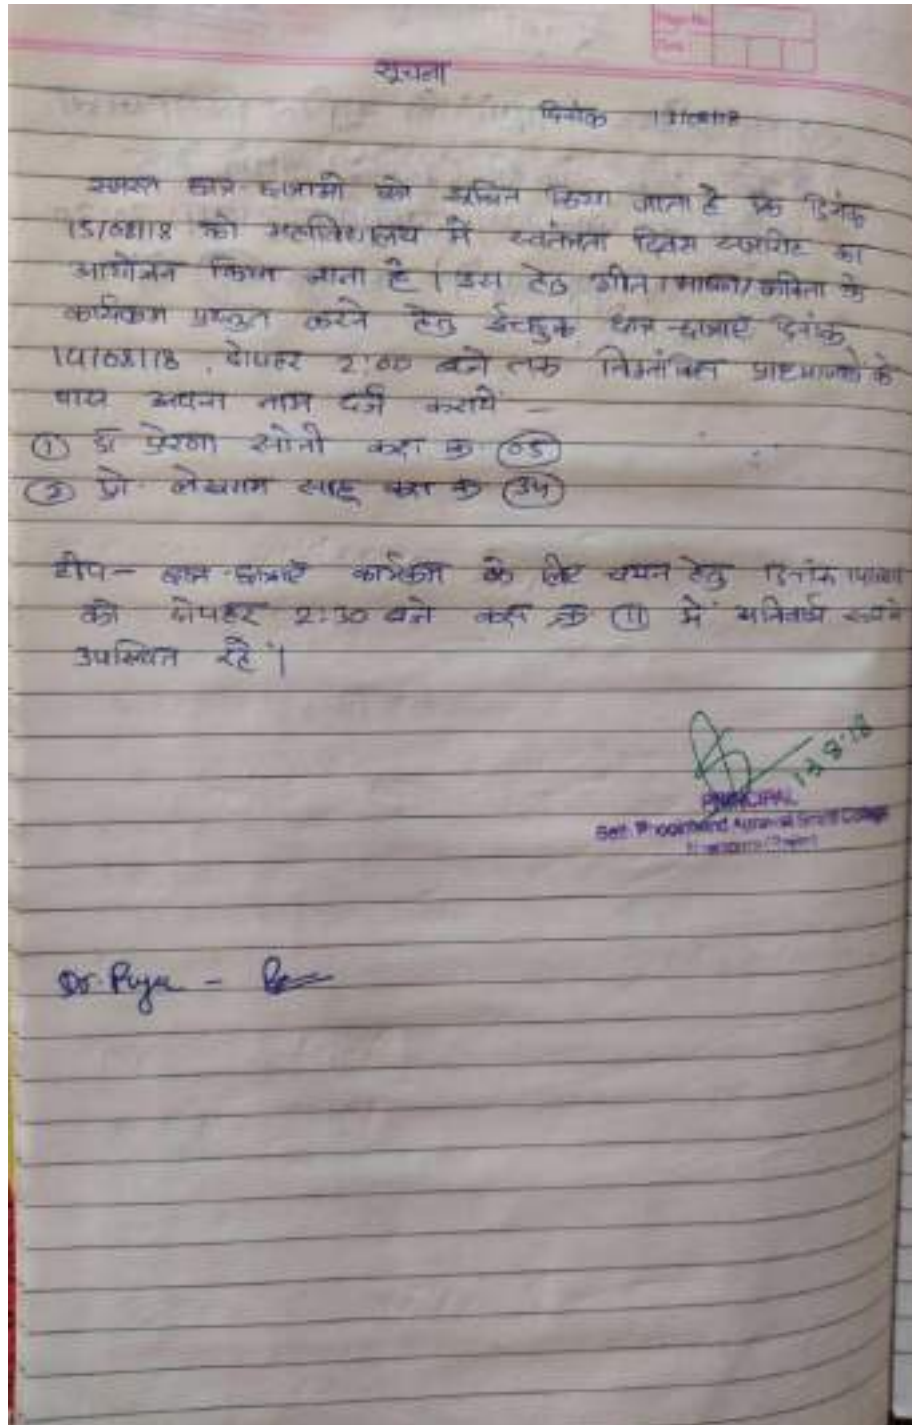 Page No.
Date
सूचना
दिनांक 13/08/18
समस्त छात्र-छात्राओं को सूचित किया जाता है कि दिनांक
15/08/18 को महाविद्यालय में स्वतंत्रता दिवस समारोह का
आयोजन किया जाना है। इस हेतु गीत/भाषण/कविता के
कार्यक्रम प्रस्तुत करने हेतु ईच्छुक छात्र-छात्राएं दिनांक
14/08/18, दोपहर 2:00 बजे तक निम्नांकित प्राध्यापकों के
पास अपना नाम दर्ज करायें -
① डॉ प्रेरणा सोनी कक्ष क्र (05)
② प्रो. लेखराम साहू कक्ष क्र (34)
टीप- छात्र-छात्राएं कार्यक्रम के लिए चयन हेतु दिनांक
को दोपहर 2:30 बजे कक्ष क्र (11) में अनिवार्य रूप से
उपस्थित रहें।
13.8.18
PRINCIPAL
Seth Phoolchand Agrawal Smriti College
Dr. Puja -